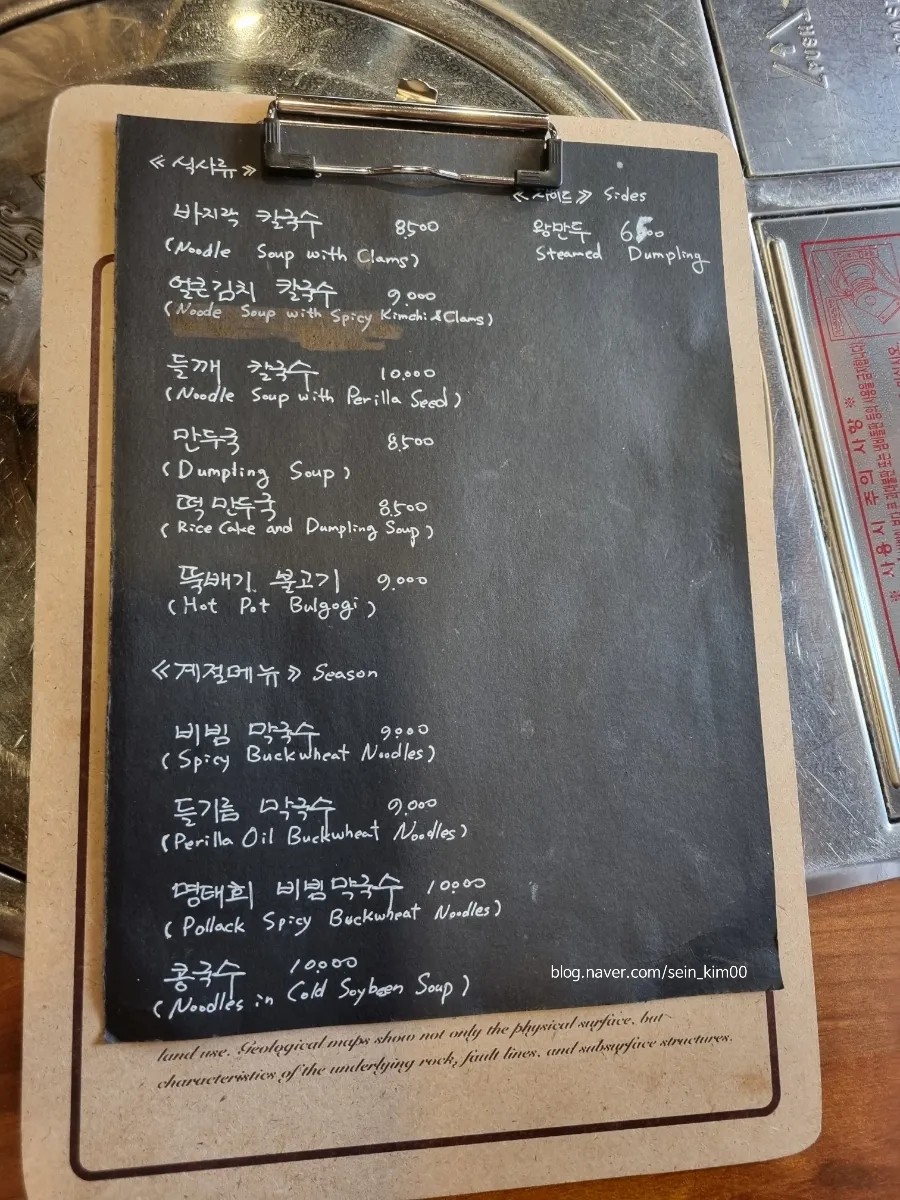 ≪식사류≫
바지락 칼국수 8,500
(Noodle Soup with Clams)
얼큰김치 칼국수 9,000
(Noode Soup with Spicy Kimchi & Clams)
들깨 칼국수 10,000
(Noodle Soup with Perilla Seed)
만두국 8,500
(Dumpling Soup)
떡만두국 8,500
(Rice Cake and Dumpling Soup)
뚝배기 불고기 9,000
(Hot Pot Bulgogi)
≪사이드≫ Sides
왕만두 6500
Steamed Dumpling
≪계절메뉴≫ Season
비빔 막국수 9,000
(Spicy Buckwheat Noodles)
들기름 막국수 9,000
(Perilla Oil Buckwheat Noodles)
명태회 비빔막국수 10,000
(Pollack Spicy Buckwheat Noodles)
콩국수 10,000
(Noodles in Cold Soybeen Soup)
blog.naver.com/sein_kim00
land use. Geological maps show not only the physical surface, but
characteristics of the underlying rock, fault lines, and subsurface structures.
※ 사용시 주의 사항 ※